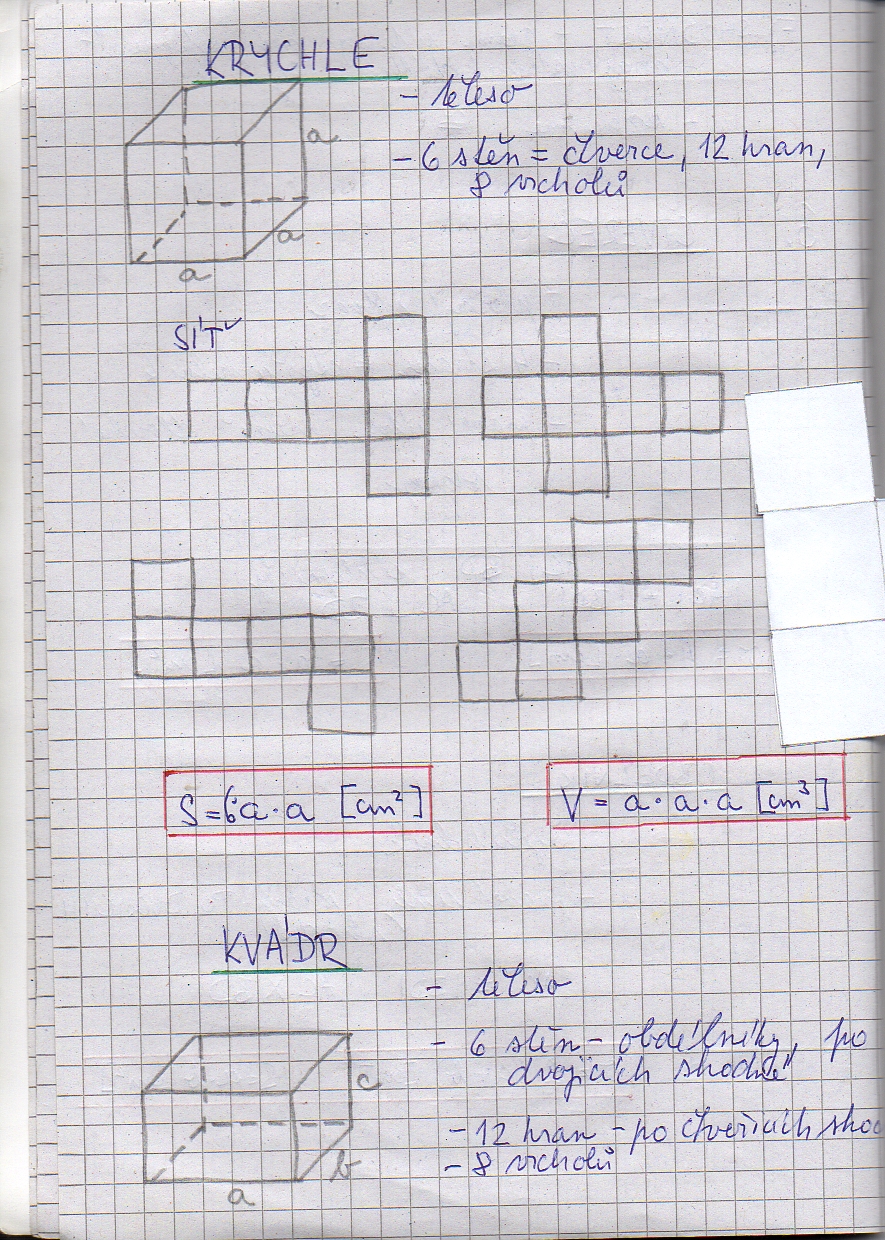 KRYCHLE
- těleso
a
- 6 stěn = čtverce, 12 hran,
8 vrcholů
a
a
SÍŤ
S = 6·a·a [cm²]
V = a·a·a [cm³]
KVÁDR
- těleso
- 6 stěn - obdélníky, po
dvojicích shodné
c
- 12 hran - po čtveřicích shod
- 8 vrcholů
b
a